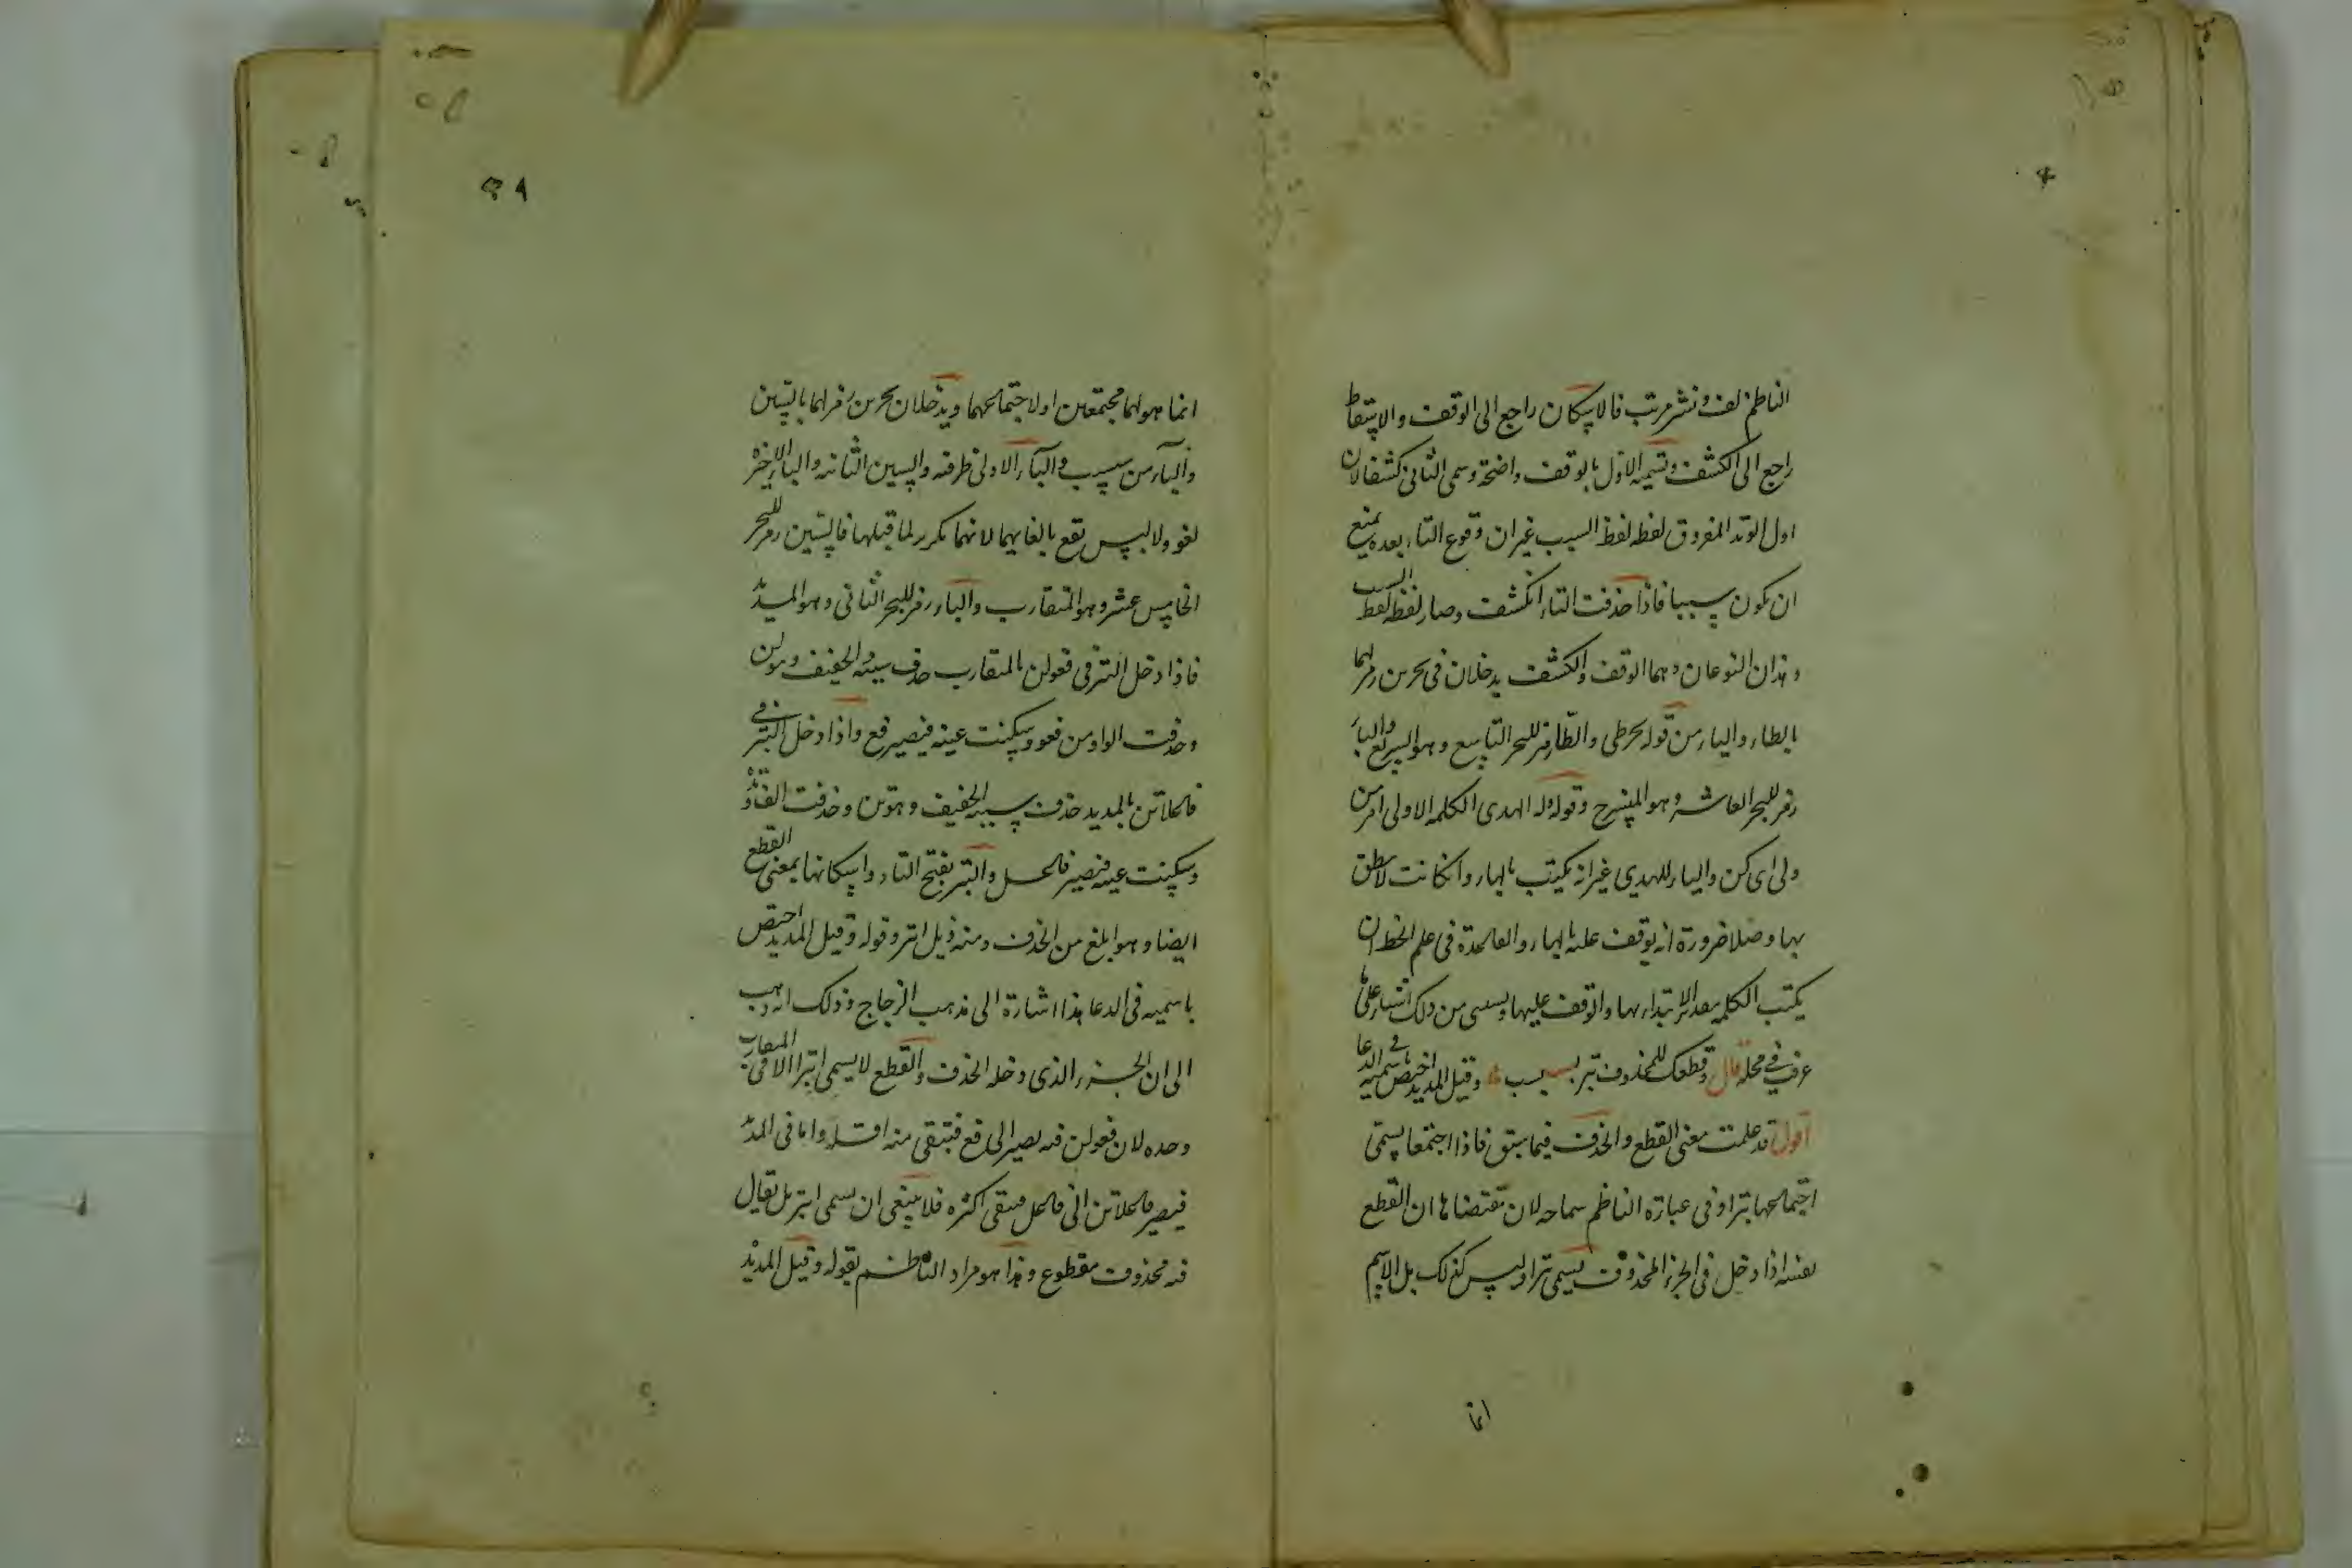 الناظم لف ونشر مرتب فالاسكان راجع الى الوقف والاسقاط
راجع الى الكشف وتسمية الاول بالوقف واضحة وسمى الثانى كشفا لان
اول الوتد المفروق لفظه لفظ السبب غير ان وقوع التاء بعده يمنع
ان يكون سببا فاذا حذفت التاء انكشف وصار لفظه لفظ السبب
وهذان النوعان وهما الوقف والكشف يدخلان فى بحرين رمز لهما
بالطاء والياء من قوله بحرطى والطا رمز للبحر التاسع وهو السريع والياء
رمز للبحر العاشر وهو المنسرح وقوله له الهدى الكلمة الاولى امر من
ولى اى كن والياء للهدى غير انه يكتب بالهاء وان كانت لا ينطق
بها وصلا ضرورة انه يوقف عليه بالهاء والقاعدة فى علم الخط ان
يكتب الكلمة بتقدير الابتداء بها والوقف عليها ويستثنى من ذلك اشياء على ما
عرف فى محله قال وقطعك للمحذوف بتر بسبسب وقيل المديد اختص باسميه فى الدعا
اقول قد علمت معنى القطع والحذف فيما سبق فاذا اجتمعا يسمى
اجتماعهما بترا وفى عبارة الناظم سماحه لان مقتضاها ان القطع
نفسه اذا دخل فى الجزء المحذوف يسمى بترا وليس كذلك بل الاسم
انما
٤٩
انما هو لهما مجتمعين او لاجتماعهما ويدخلان بحرين رمز لهما بالسين
والباء من سبسب والباء الاولى ظرفية والسين الثانية والباء الاخيرة
لغو ولا لبس يقع بالغايهما لانهما تكرير لما قبلهما فالسين رمز للبحر
الخامس عشر وهو المتقارب والباء رمز للبحر الثانى وهو المديد
فاذا دخل البتر فى فعولن بالمتقارب حذف سببه الخفيف وهو لن
وحذفت الواو من فعو وسكنت عينه فيصير فع واذا دخل البتر فى
فاعلاتن بالمديد حذف سببه الخفيف وهو تن وحذفت الف وتده
وسكنت عينه فيصير فاعل والبتر بفتح التاء واسكانها بمعنى القطع
ايضا وهو ابلغ من الحذف ومنه ذيل ابتر وقوله وقيل المديد اختص
باسميه فى الدعا هذا اشارة الى مذهب الزجاج وذلك انه ذهب
الى ان الجزء الذى دخله الحذف والقطع لا يسمى ابترا الا فى المتقارب
وحده لان فعولن فيه يصير الى فع فيبقى منه اقله واما فى المديد
فيصير فاعلاتن الى فاعل فيبقى اكثره فلا ينبغى ان يسمى ابتر بل يقال
فيه محذوف مقطوع وهذا هو مراد الناظم بقوله وقيل المديد